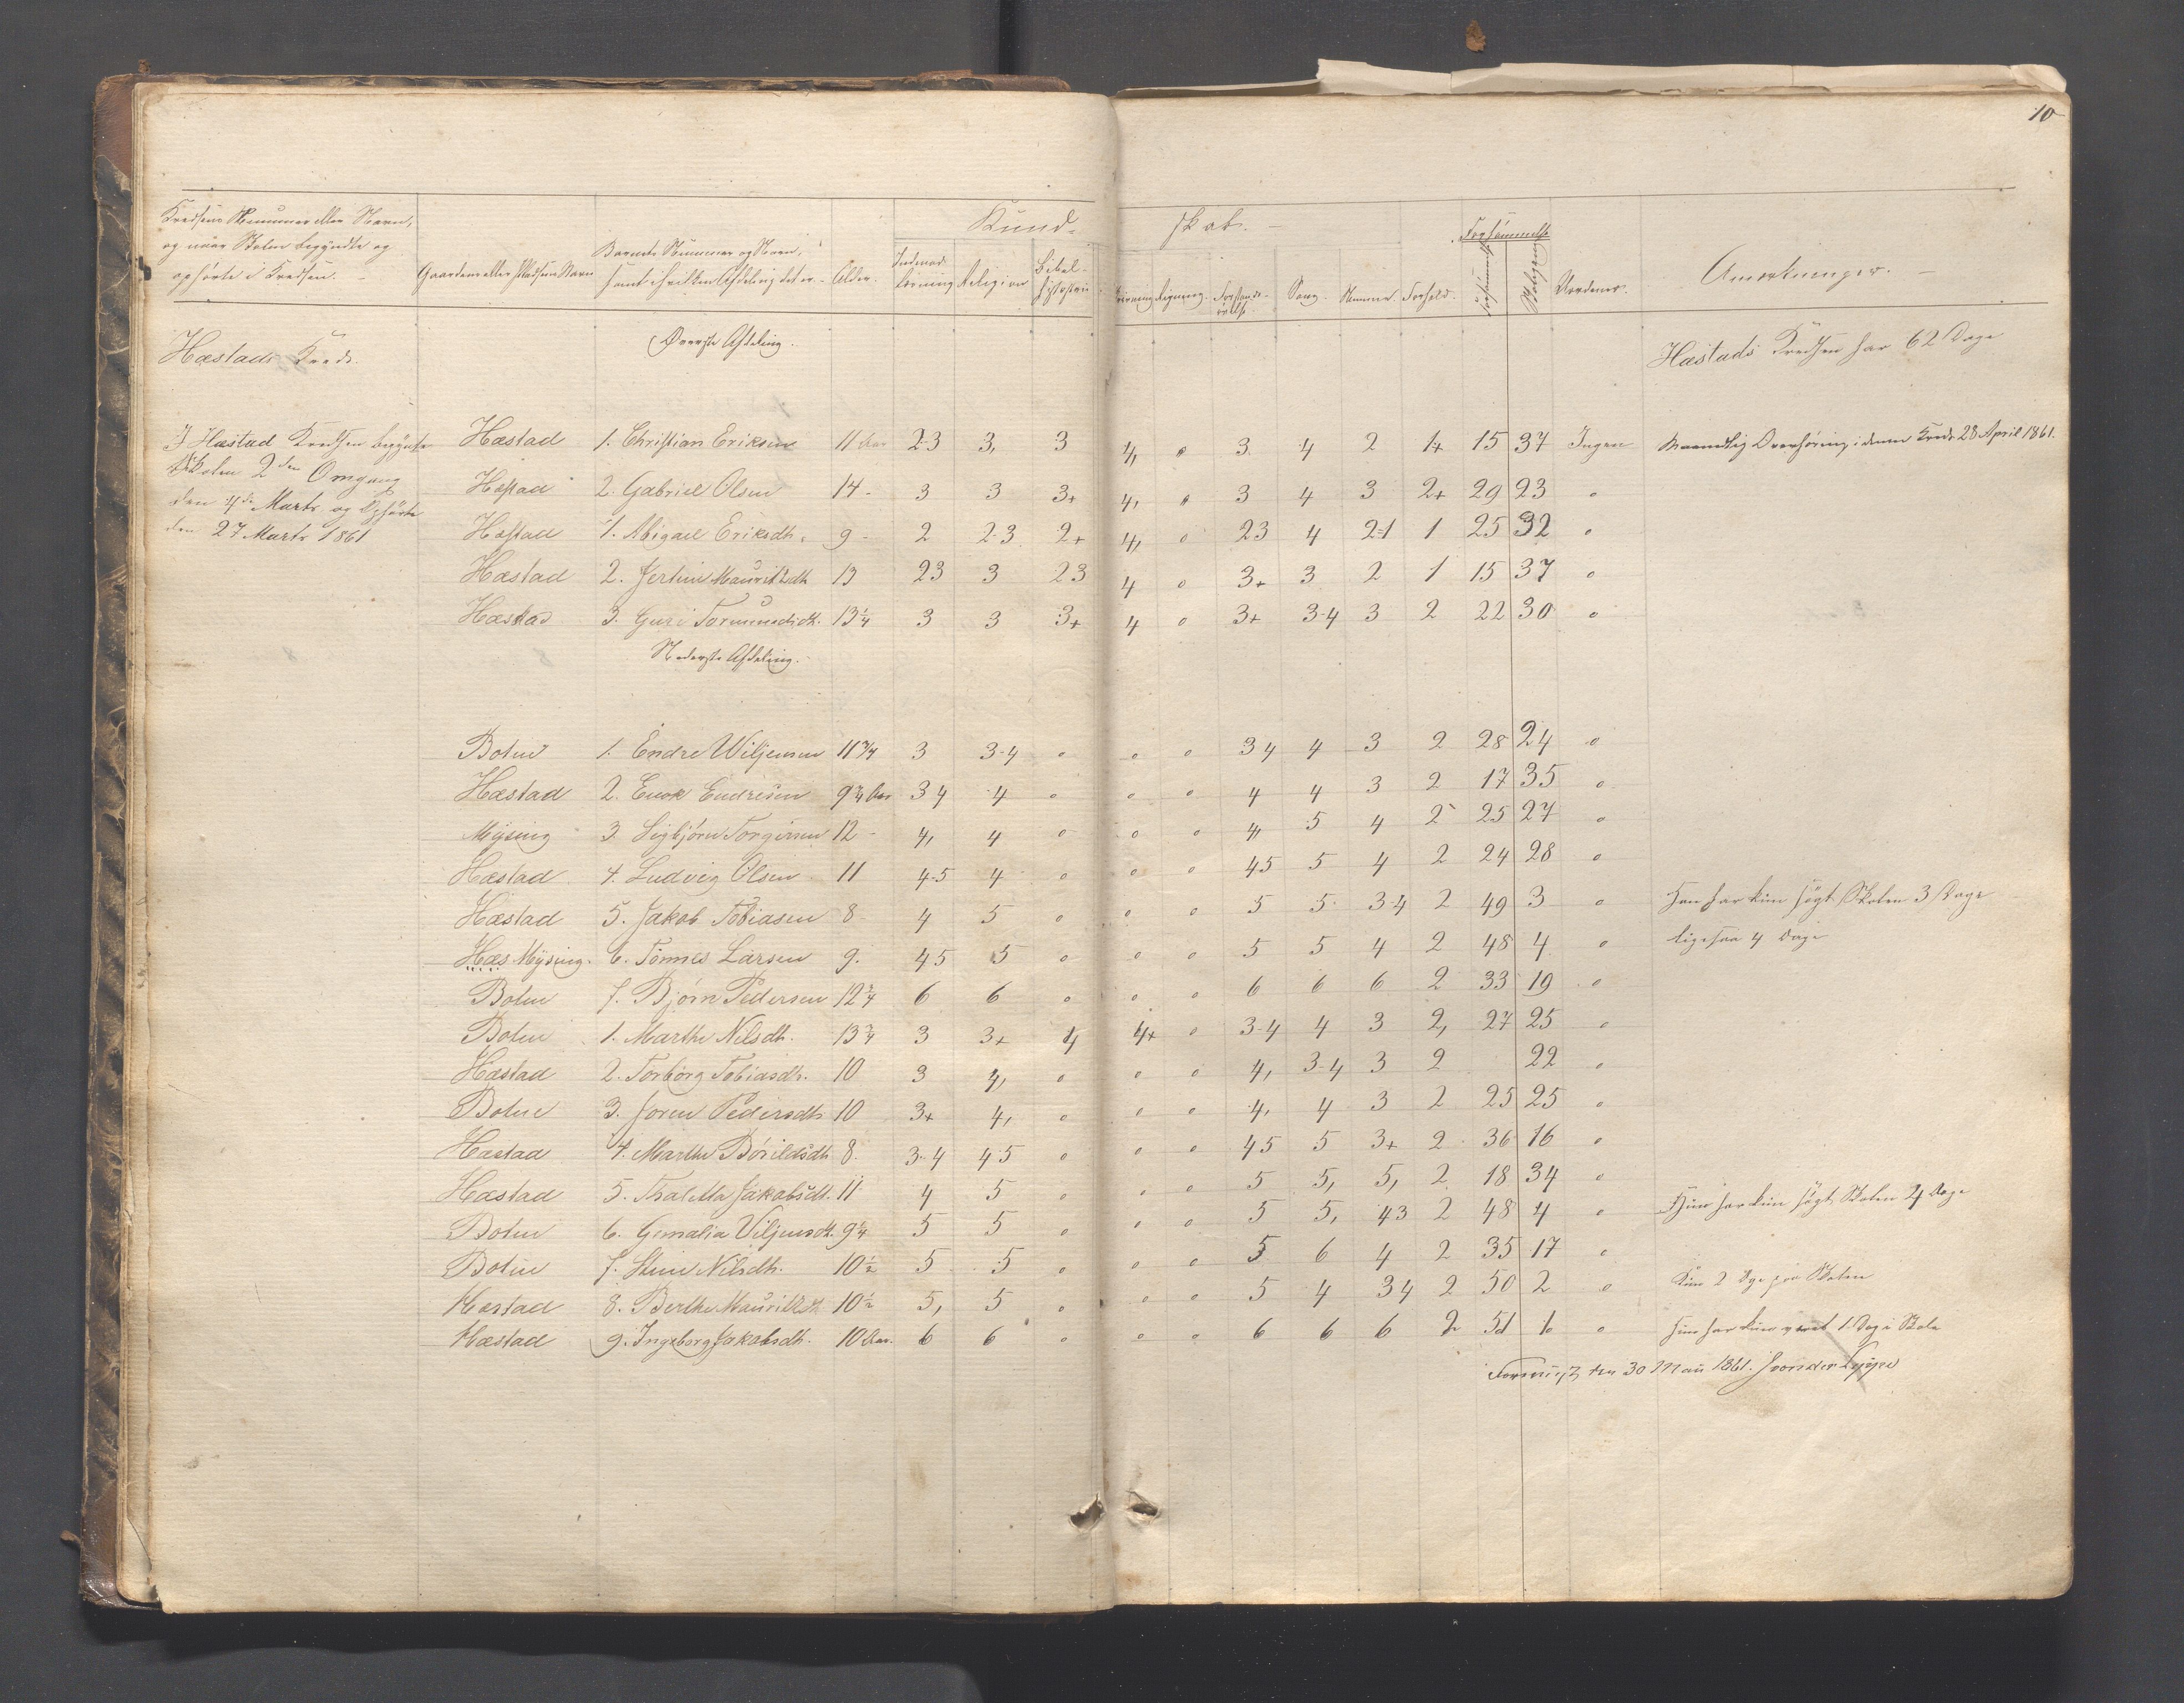 10
Kredsens Nummer eller Navn,
og naar Skolen begyndte og
ophørte i Kredsen.
Gaardens eller Pladsens Navn
Barnets Nummer og Navn,
samt i hvilken Afdeling det er.
Alder.
Kund-
skab.
Religion
Bibel-
historie
Skrivning
Regning.
Sang.
Forhold.
Forsømmelse
Anmærkninger.
Hæstads Kreds.
Øverste Afdeling.
Hæstads Kredsen har 62 Dage
I Hæstad Kredsen begyndte
Skolen 2den Omgang
den 4de Marts og Ophørte
den 27 Marts 1861
Hæstad 1. Christian Eriksen 11 Aar 2-3 3, 3 4, " 3 4 2 1+ 15 37 Ingen Maanedlig Overhøring i denne Kreds 28 April 1861.
Hæstad 2. Gabriel Olsen 14 - 3 3 3+ 4, " 3 4 3 2+ 29 23 "
Hæstad 1. Abigael Eriksdh. 9 - 2 2-3 2+ 4, " 23 4 2-1 1 25 32 "
Hæstad 2. Jertine Mauritzdh 13 23 3 23 4 " 3+ 3 2 1 15 37 "
Hæstad 3. Guri Tormunddsdt. 13¼ 3 3 3+ 4 " 3+ 3-4 3 2 22 30 "
Nederste Afdeling.
Botne 1. Endre Wiljemsen 11¾ 3 3-4 " " " 34 4 3 2 28 24 "
Hæstad 2. Enok Endresen 9¾ Aar 34 4 " " " 4 4 3 2 17 35 "
Mysing 3. Sigbjørn Torgersen 12 - 4, 4 " " " 4, 5 4 2 25 27 "
Hæstad 4. Ludvig Olsen 11 4-5 4 " " " 45 5 4 2 24 28 "
Hæstad 5. Jakob Tobiasen 8 - 4 5 " " " 5 5 3-4 2 49 3 " Han har kun søgt Skolen 3 Dage
Hæs Mysing. 6. Tønnes Larsen 9. 45 5 " " " 5 5 4 2 48 4 " ligesaa 4 Dage
Botne 7. Bjørn Pedersen 12¾ 6 6 " " " 6 6 6 2 33 19 "
Botne 1. Marthe Nilsdh. 13¾ 3 3+ 4 4+ " 3-4 4 3 2, 27 25 "
Hæstad 2. Torborg Tobiasdh. 10 3 4, " " " 4, 3-4 3 2 22 "
Botne 3. Joren Pedersdh 10 3+ 4, " " " 4, 4 3 2 25 25 "
Hæstad 4. Marthe Bórildsdh 8. 3-4 45 " " " 45 5 3+ 2 36 16 "
Hæstad 5. Thaletta Jakobsdt. 11 4 5 " " " 5 5, 5, 2 18 34 "
Botne 6. Gemalia Viljemsdt. 9¼ 5 5 " " " 5 5, 43 2 48 4 " Hun har kun søgt Skolen 4 Dage
Botne 7. Stine Nilsdh. 10½ 5 5 " " " 5 6 4 2 35 17 "
Hæstad 8. Berthe Mauritzdt 10½ 5, 5 " " " 5 4 34 2 50 2 " Kun 2 Dge paa Skolen
Hæstad 9. Ingeborg Jakobsdh. 10 Aar. 6 6 " " " 6 6 6 2 51 1 " Hun har kun været 1 Dag i Skole
den 30 Mai 1861.